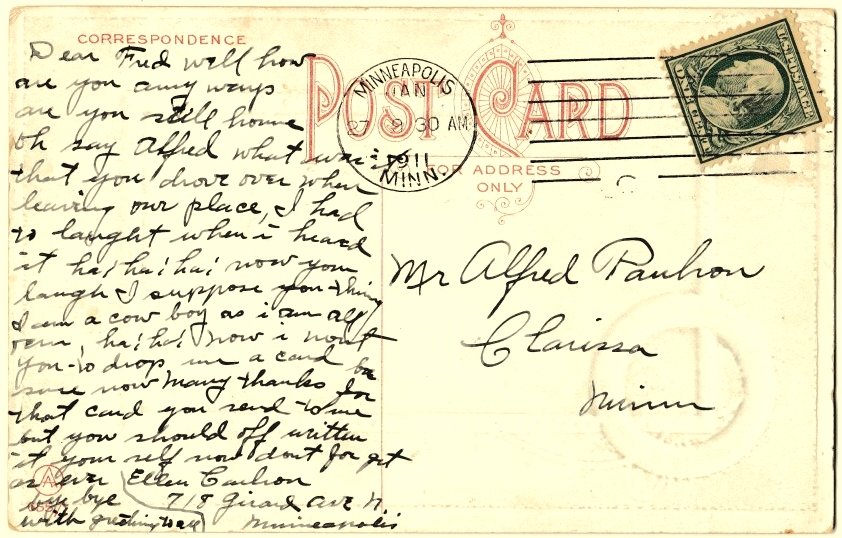 CORRESPONDENCE
POST CARD
FOR ADDRESS
ONLY
MINNEAPOLIS
JAN
27 9 30 AM
1911
MINN.
Dear Fred well how
are you any ways
are you still home
oh say Alfred what was
that you drove over when
leaving our place, I had
to laught when i heard
it ha! ha! ha! now you
laugh I suppose you thing
I am a cow boy as i am all
ha! ha! Now i wont
you to drop me a card be
sure now many thanks for
that card you send to me
but you should off written
it your self now dont for get
as ever Ellen Carlson
bye bye 718 Girard ave N.
with greetings to all Minneapolis
Mr Alfred Paulson
Clarissa
Minn